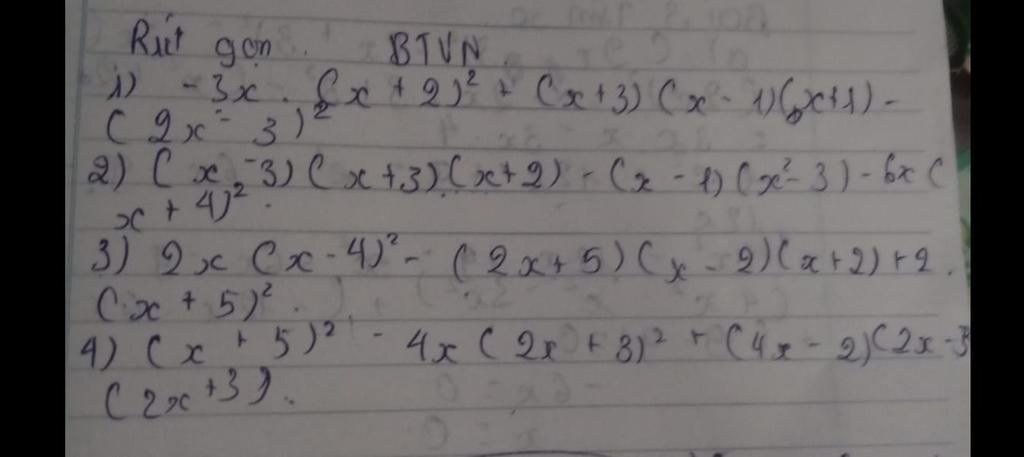 Rút gọn. BTVN
1) - 3x. (x + 2)² + (x+3) (x - 1)(x+1) -
( 2x - 3)²
2) ( x - 3) ( x+3) (x+2) - (x - 1) (x² - 3) - 6x (
x + 4)².
3) 2x (x - 4)² - ( 2x + 5) (x - 2) (x+2) + 2.
(x + 5)².
4) (x + 5)² - 4x ( 2x + 3)² + (4x - 2) (2x - 3
( 2x + 3).